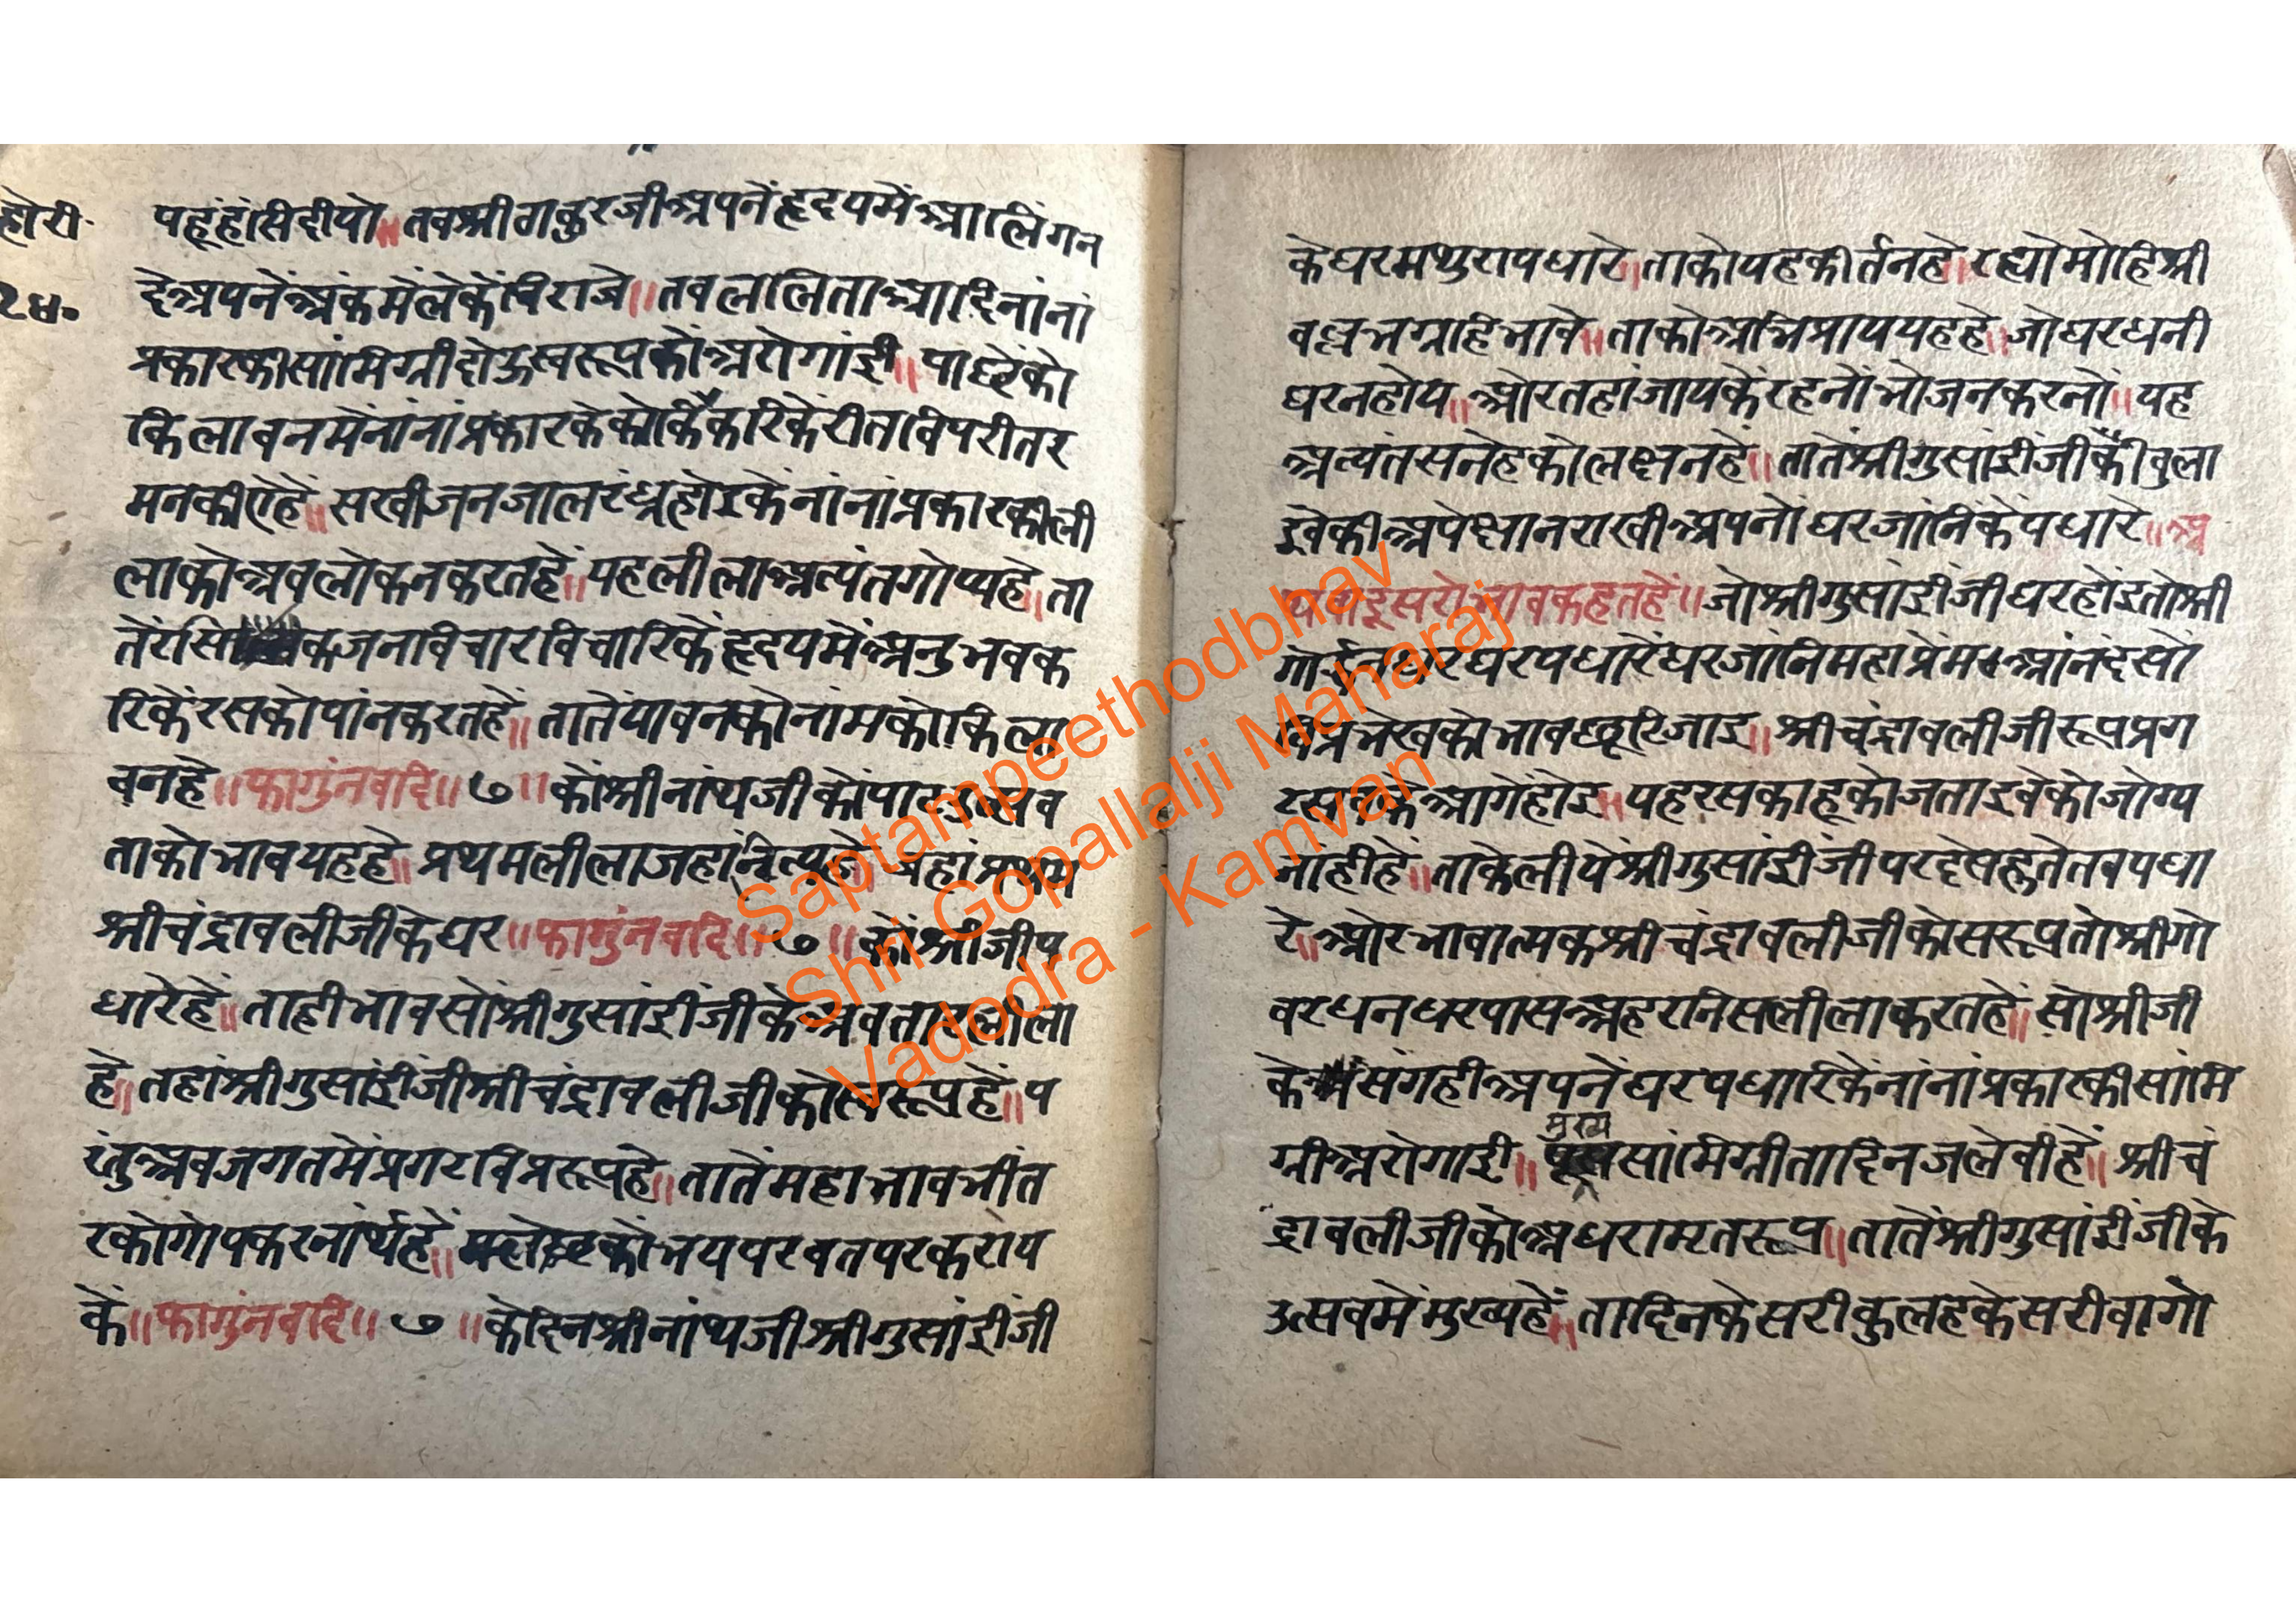 होरी
२४०
पहूंहांसिदीयो॥तवश्रीठाकुरजीअपनेंहृदयमेंआलिंगन
देअपनेंअंकमेंलेकेंबिराजे॥तवललिताआदिनांनां
प्रकारकीसांमिग्रीदोऊस्वरूपकोंअरोगांई॥पाछेंको
किलावनमेंनांनांप्रकारकेकोकिंकरिकेंरीतविपरीतर
मनकीएहें॥सखीजनजालरंध्रहोइकेंनांनांप्रकारकीली
लाकोअवलोकनकरतहें॥यहलीलाअत्यंतगोप्यहे॥ता
तेंरसिकजनविचारविचारिकेंहृदयमेंअनुभवक
रिकेंरसकोपांनकरतहें॥तातेंयावनकोनांमकोकिला
वनहे॥फागुंनवदि॥७॥कोंश्रीनांथजीकोंपाटउत्सव
ताकोभावयहहे॥प्रथमलीलाजहांनित्यहे॥तहांप्रथम
श्रीचंद्रावलीजीकेघर॥फागुंनवदि॥७॥कोंश्रीजीप
धारेहें॥ताहीभावसोंश्रीगुसांईजीकेअवतारलीला
हे॥तहांश्रीगुसांईजीश्रीचंद्रावलीजीकोस्वरूपहें॥प
रंतुअवजगतमेंप्रगटविप्ररूपहे॥तातेंमहाभावभींत
रकोगोपकरनार्थहें॥म्लेछकोभयपरवतपरकराय
कें॥फागुंनवदि॥७॥केदिनश्रीनांथजीश्रीगुसांईजी
केघरमथुरापधारे॥ताकोयहकीर्तनहे॥रह्योमोहिश्री
वल्लभग्रहिभावे॥ताकोअभिप्राययहहे॥जोघरधनी
घरनहोय॥ओरतहांजायकेंरहनोंभोजनकरनों॥यह
अत्यंतसनेहकोलक्षनहे॥तातेंश्रीगुसांईजीकैवुला
इवेकीअपेक्षानराखीअपनोंघरजांनिकेंपधारे॥अ
थवादूसरोभावकहतहें॥जोश्रीगुसांईजीघरहोंइतोश्री
गोर्वर्द्धनधरघरपधारेंघरजांनिमहाप्रेमआंनंदसों
विप्रभेखकोभावछूटिजाइ॥श्रीचंद्रावलीजीरूपप्रग
टसबकेआगेंहोइ॥यहरसकाहूकोजताइवेकोजोग्य
नांहीहें॥ताकेलीयेंश्रीगुसांईजीपरदेसहुतेतबपधा
रे॥ओरभावात्मकश्रीचंद्रावलीजीकोसरूपतोश्रीगो
वरधनधरपासअहरनिसलीलाकरतहें॥सोश्रीजी
केसंगहीअपनेंघरपधारिकेंनांनांप्रकारकीसांमि
ग्रीअरोगाई॥मुख्यसांमिग्रीतादिनजलेवीहें॥श्रीचं
द्रावलीजीकोअधरामृतरूप॥तातेंश्रीगुसांईजीके
उत्सवमेंमुख्यहें॥तादिनकेसरीकुलहकेसरीवागो
Saptampeethodbhav
Shri Gopallalji Maharaj
Vadodra - Kamvan